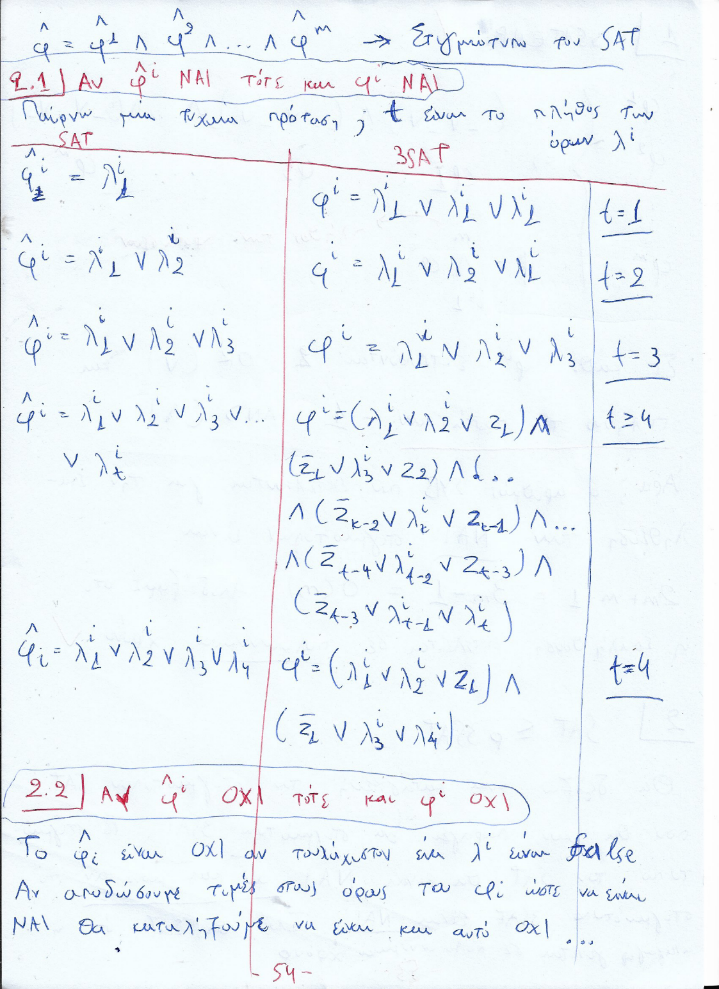 φ̂ = φ̂¹ ∧ φ̂² ∧ ... ∧ φ̂ᵐ → Στιγμιότυπο του SAT
2.1 | Αν φ̂ⁱ ΝΑΙ τότε και φⁱ ΝΑΙ
Παίρνω μία τυχαία πρόταση j t είναι το πλήθος των
όρων λⁱ
SAT 3SAT
φ̂ⁱ₁ = λⁱ₁ φⁱ = λⁱ₁ ∨ λⁱ₁ ∨ λⁱ₁ t=1
φ̂ⁱ = λⁱ₁ ∨ λⁱ₂ φⁱ = λⁱ₁ ∨ λⁱ₂ ∨ λⁱ₁ t=2
φ̂ⁱ = λⁱ₁ ∨ λⁱ₂ ∨ λⁱ₃ φⁱ = λⁱ₁ ∨ λⁱ₂ ∨ λⁱ₃ t=3
φ̂ⁱ = λⁱ₁ ∨ λⁱ₂ ∨ λⁱ₃ ∨ ... φⁱ = (λⁱ₁ ∨ λⁱ₂ ∨ z₁) ∧ t≥4
∨ λⁱₜ (z̄₁ ∨ λⁱ₃ ∨ z₂) ∧ ...
∧ (z̄ₖ₋₂ ∨ λⁱₜ ∨ zₜ₋₁) ∧ ...
∧ (z̄ₜ₋₄ ∨ λⁱₜ₋₂ ∨ zₜ₋₃) ∧
(z̄ₜ₋₃ ∨ λⁱₜ₋₁ ∨ λⁱₜ)
φ̂ᵢ = λⁱ₁ ∨ λⁱ₂ ∨ λⁱ₃ ∨ λⁱ₄ φⁱ = (λⁱ₁ ∨ λⁱ₂ ∨ z₁) ∧ t=4
(z̄₁ ∨ λⁱ₃ ∨ λⁱ₄)
2.2 | Αν φ̂ⁱ ΟΧΙ τότε και φⁱ ΟΧΙ
Το φ̂ᵢ είναι ΟΧΙ αν τουλάχιστον ένα λⁱ είναι false
Αν αποδώσουμε τιμές στους όρους του φᵢ ώστε να είναι
ΝΑΙ θα καταλήξουμε να είναι και αυτό ΟΧΙ ...
- 54 -